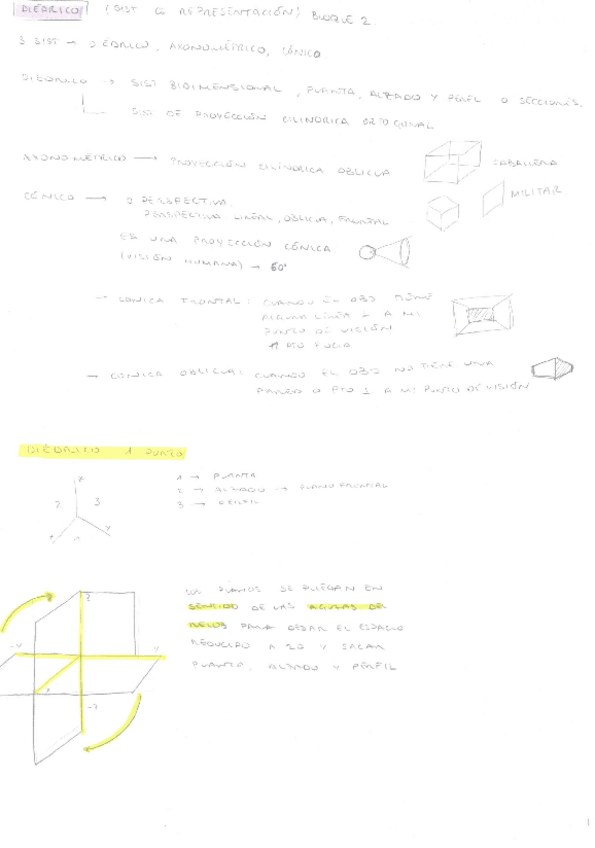 DIÉDRICO (SIST DE REPRESENTACIÓN) BLOQUE 2.
3 SIST → DIÉDRICO, AXONOMÉTRICO, CÓNICO.
DIEDRICO → SIST BIDIMENSIONAL, PLANTA, ALZADO Y PERFIL O SECCIONES.
SIST DE PROYECCIÓN CILINDRICA ORTOGONAL
AXONOMÉTRICO → PROYECCIÓN CILÍNDRICA OBLICUA
CABALLERA
MILITAR
CÓNICO → O PERSPECTIVA.
PERSPECTIVA LINEAL, OBLICUA, FRONTAL
ES UNA PROYECCIÓN CÓNICA
(VISIÓN HUMANA) → 60°
→ CONICA FRONTAL: CUANDO EL OBJ TIENE
ALGUNA LÍNEA ⊥ A MI
PUNTO DE VISIÓN
1 PTO FUGA
→ CONICA OBLICUA: CUANDO EL OBJ NO TIENE UNA
PARED O PTO ⊥ A MI PUNTO DE VISIÓN
DIÉDRICO 1 PUNTO
z
2 3
x 1 y
1 → PLANTA
2 → ALZADO → PLANO FRONTAL
3 → PERFIL
LOS PLANOS SE PLIEGAN EN
SENTIDO DE LAS AGUJAS DEL
RELOJ PARA DEJAR EL ESPACIO
REDUCIDO A 2D Y SACAR
PLANTA, ALZADO Y PERFIL
z
-y
y
x
-z
1